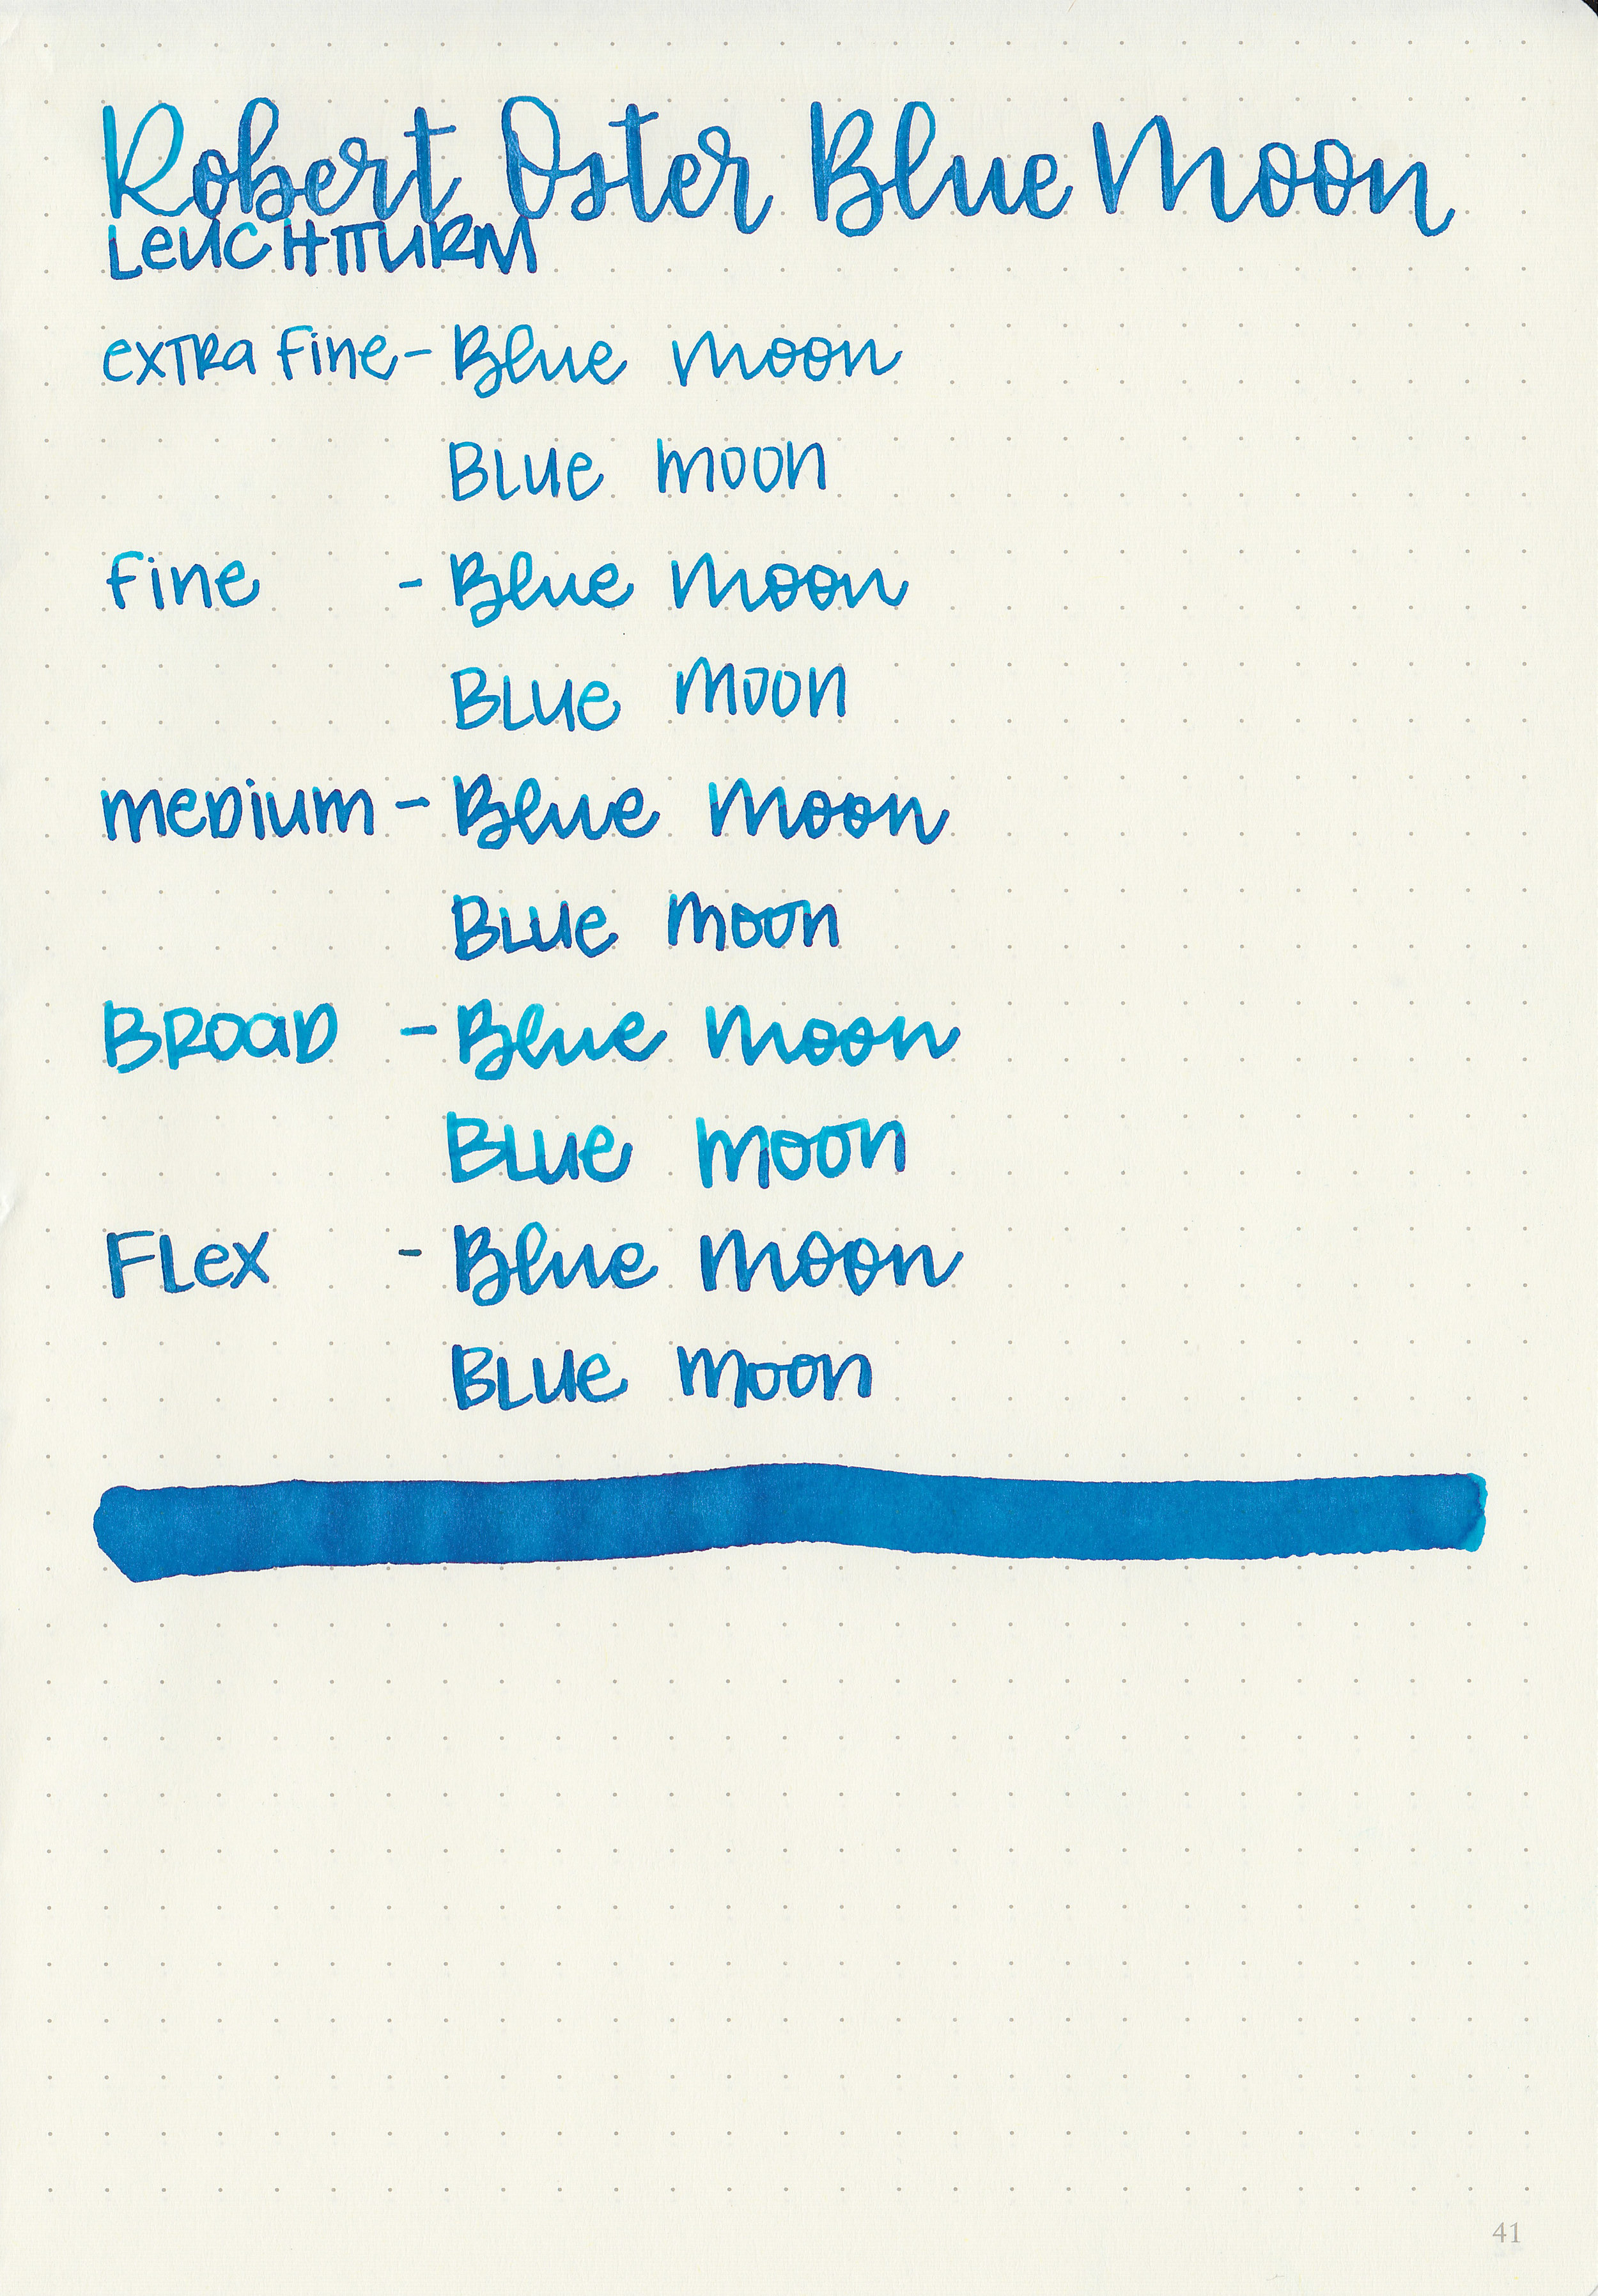 Robert Oster Blue Moon
LeUCHTTURM
exTRa Fine - Blue Moon
BLUe moon
Fine - Blue Moon
BLUe moon
meDium - Blue Moon
BLUe moon
BROaD - Blue Moon
BLUe moon
FLex - Blue Moon
BLUe moon
41